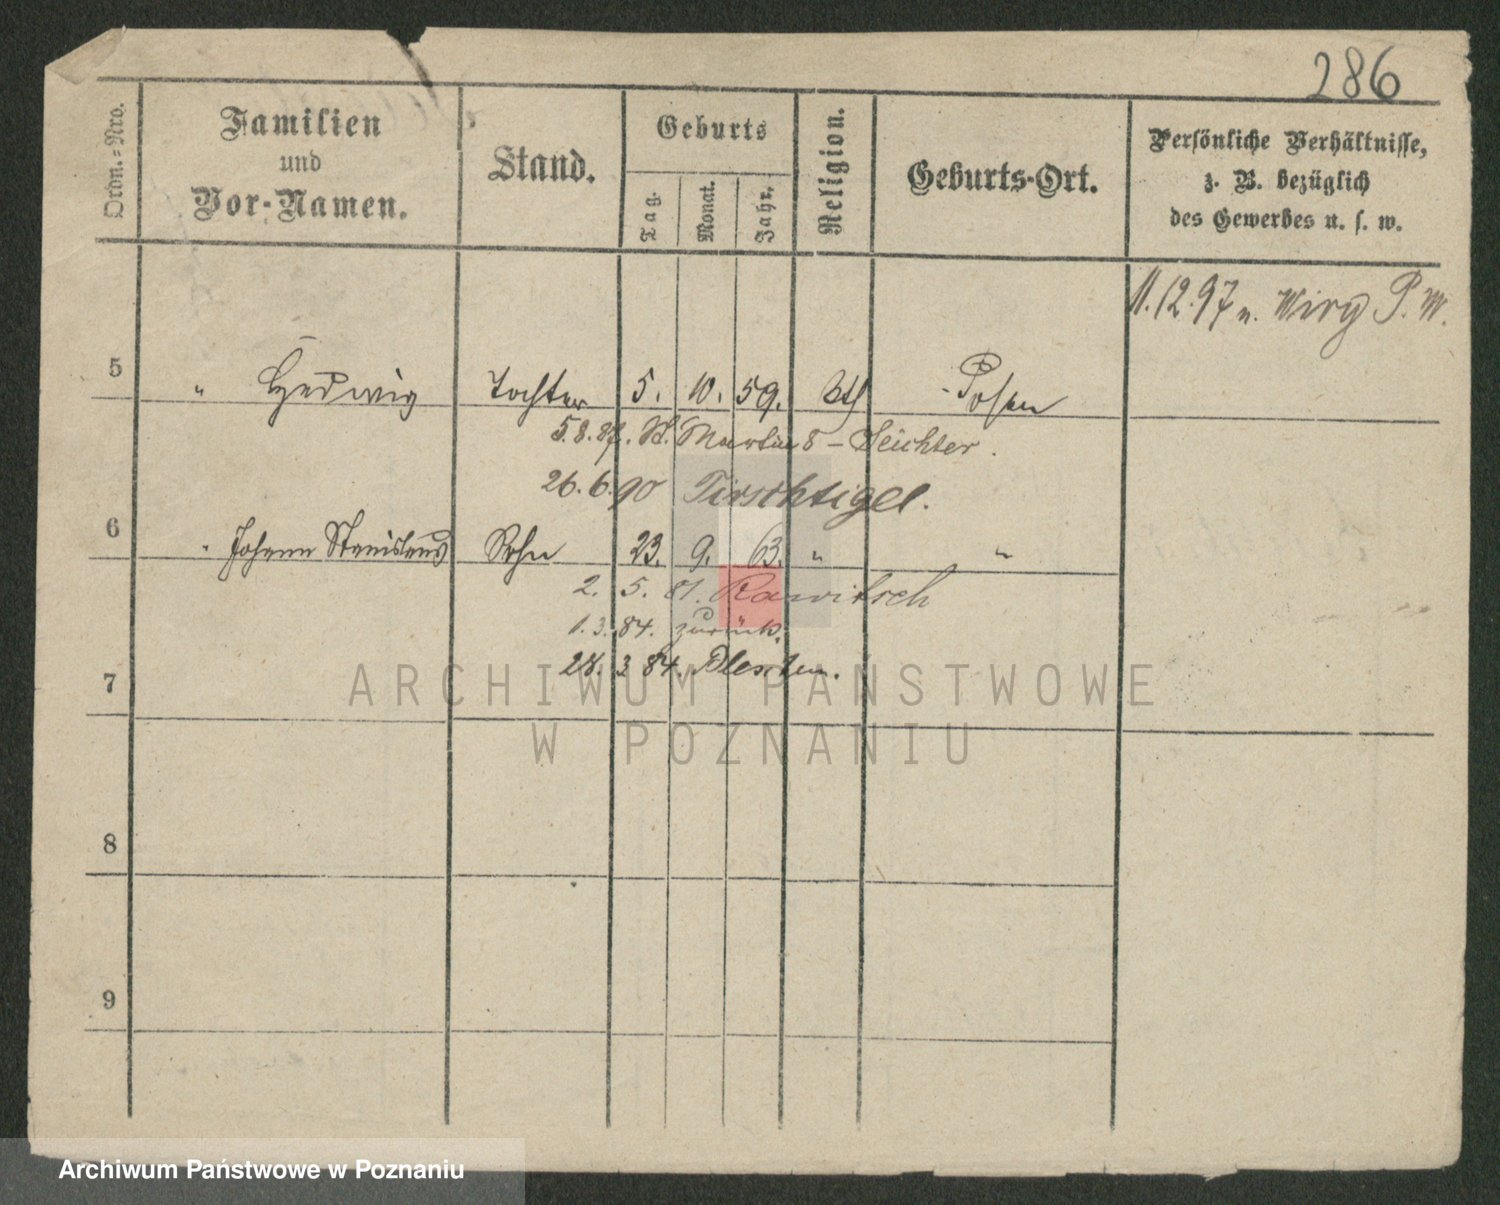 286
Ordn.=Nro.
Familien
und
Vor-Namen.
Stand.
Geburts
Tag.
Monat.
Jahr.
Religion.
Geburts-Ort.
Persönliche Verhältnisse,
z. B. bezüglich
des Gewerbes u. s. w.
11.12.97 n. Wirg P. W.
5 " Hedwig Tochter 5. 10. 59. kth Posen
5.8.87. St. Martin 8 – Leichter.
26.6.90 Tirschtigel.
6 " Johann Stanislaus Sohn 23. 9. 63. " "
2. 5. 81. Rawitsch
1.3.84. zurück.
28. 3 84. Pleschen.
7
ARCHIWUM PAŃSTWOWE
W POZNANIU
8
9
Archiwum Państwowe w Poznaniu